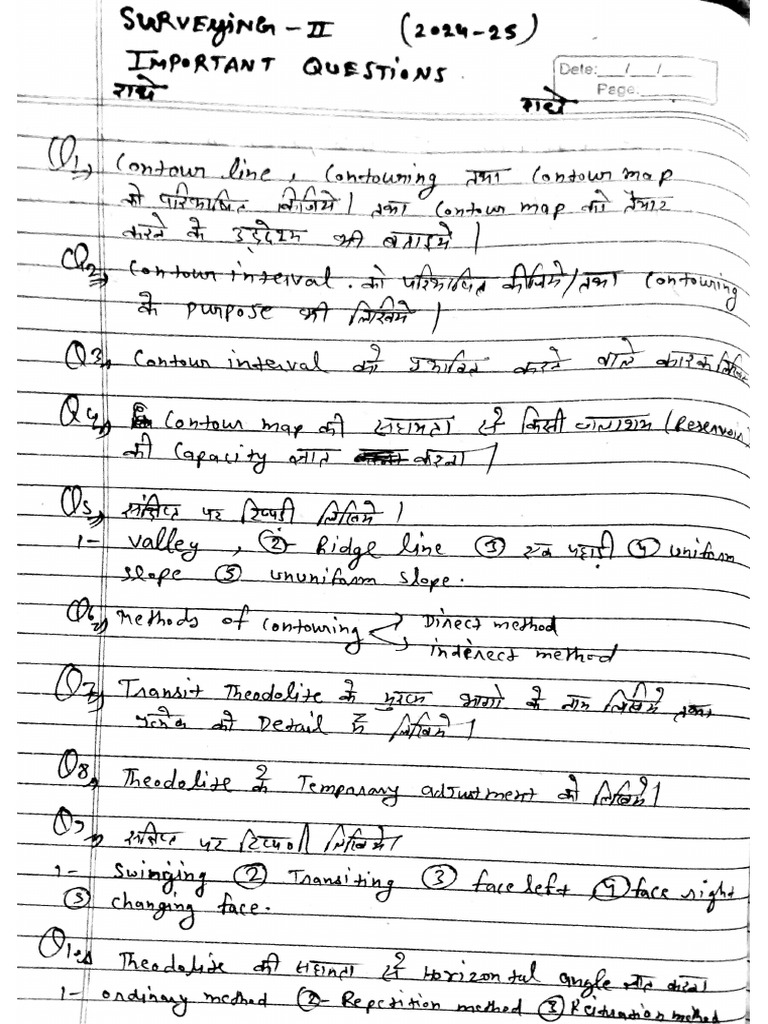 SURVEYING - II (2024-25)
IMPORTANT QUESTIONS.
Date: __/__/__
Page.
राधे राधे
Q1, Contour line, Contouring तथा Contour map
को परिभाषित किजिये। तथा Contour map को तैयार
करने के उद्देश्य भी बताइये।
Q2, Contour interval को परिभाषित कीजिये/तथा Contouring
के purpose भी लिखिये।
Q3, Contour interval को प्रभावित करने वाले कारक लिखिए
Q4, Contour map की सहायता से किसी जलाशय (Reservoir)
की Capacity ज्ञात करना।
Q5, संक्षिप्त पर टिप्पडी लिखिये।
1- valley, ②- Ridge line ③ एक पहाड़ी ④ uniform
slope ⑤ ununiform slope.
Q6, Methods of Contouring Direct method
indirect method
Q7, Transit Theodolite के मुख्य भागो के नाम लिखिये तथा
प्रत्येक को Detail में लिखिये।
Q8, Theodolite के Temporary adjustment को लिखिये।
Q9, संक्षिप्त पर टिप्पणी लिखिये।
1- Swinging ② Transiting ③ face left, ④ face right
⑤ changing face.
Q10, Theodolite की सहायता से Horizontal angle ज्ञात करना
1- ordinary method ②- Repetition method ③ Reiteration method